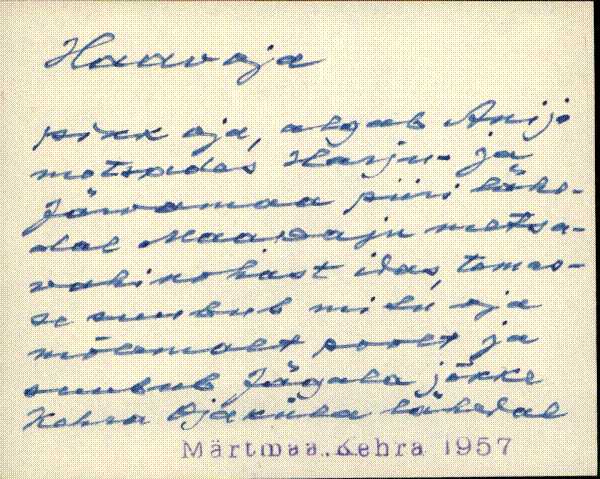 Haavoja
pikk oja, algab Anija
metsades Harju- ja
Järvamaa piiri lähe-
dal Maapaju metsa-
vahikohast idas, temas-
se suubub mitu oja
mõlemalt poolt ja
suubub Jägala jõkke
Kehra Ojaküla lähedal
Märtmaa. Kehra 1957